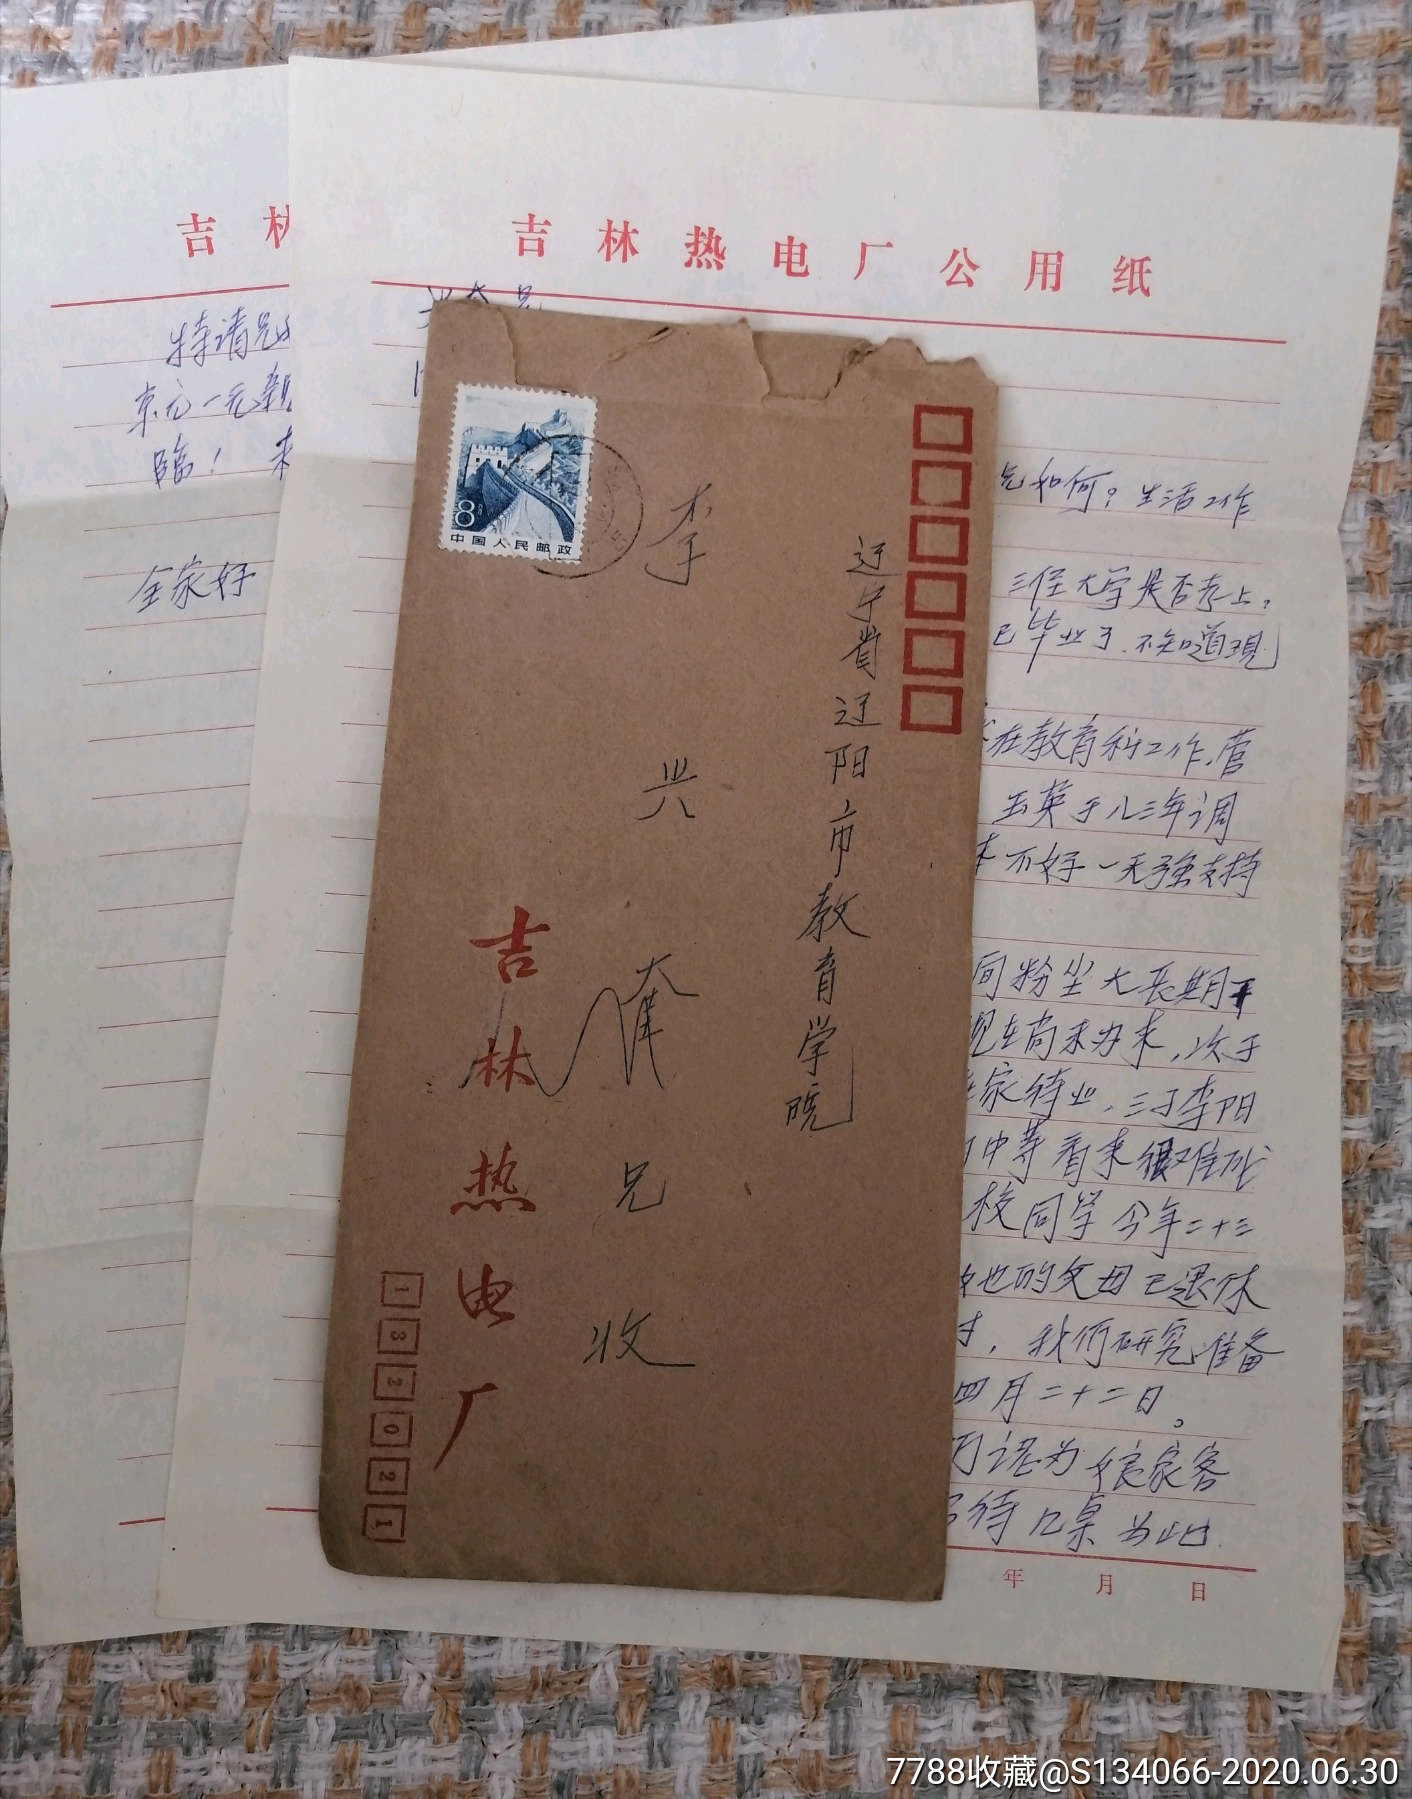 吉林
特请兄
京元一元亲
临！来
全家好
吉林热电厂公用纸
兄如何？生活工作
三侄大学是否考上，
已毕业了.不知道現
在教育科工作.管
玉英于八三年调
不好一天强支持
间粉尘大长期下
现在尚未办来,次子
家待业.三丁李阳
中等看来很难
校同学今年二十三
他的父母已退休
我们研究准备
四月二十二日。
认为娘家客
待几桌为此
年 月 日
8分
中国人民邮政
辽宁省辽阳市教育学院
李兴奎兄收
吉林热电厂
132021
7788收藏@S134066-2020.06.30